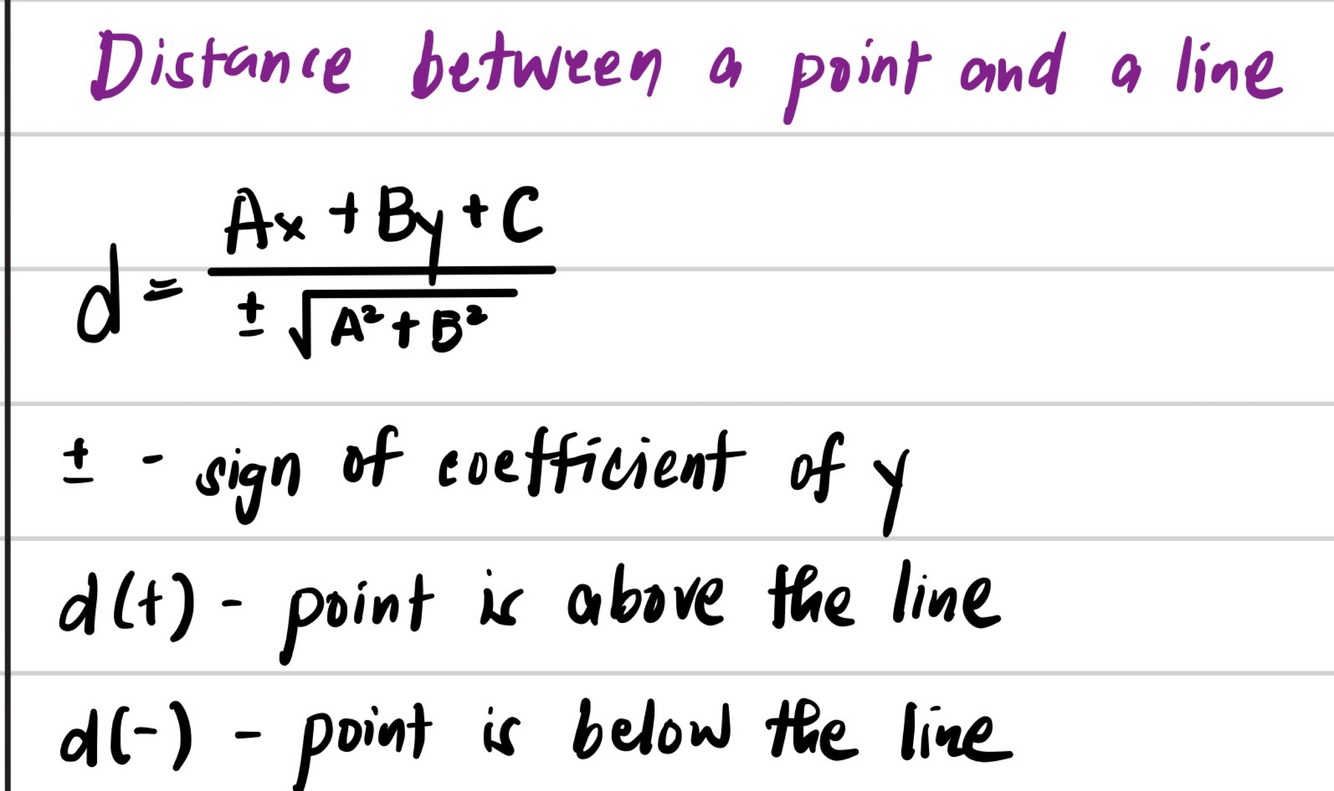 Distance between a point and a line
d = Ax + By + C / ± √A² + B²
± - sign of coefficient of y
d(+) - point is above the line
d(-) - point is below the line